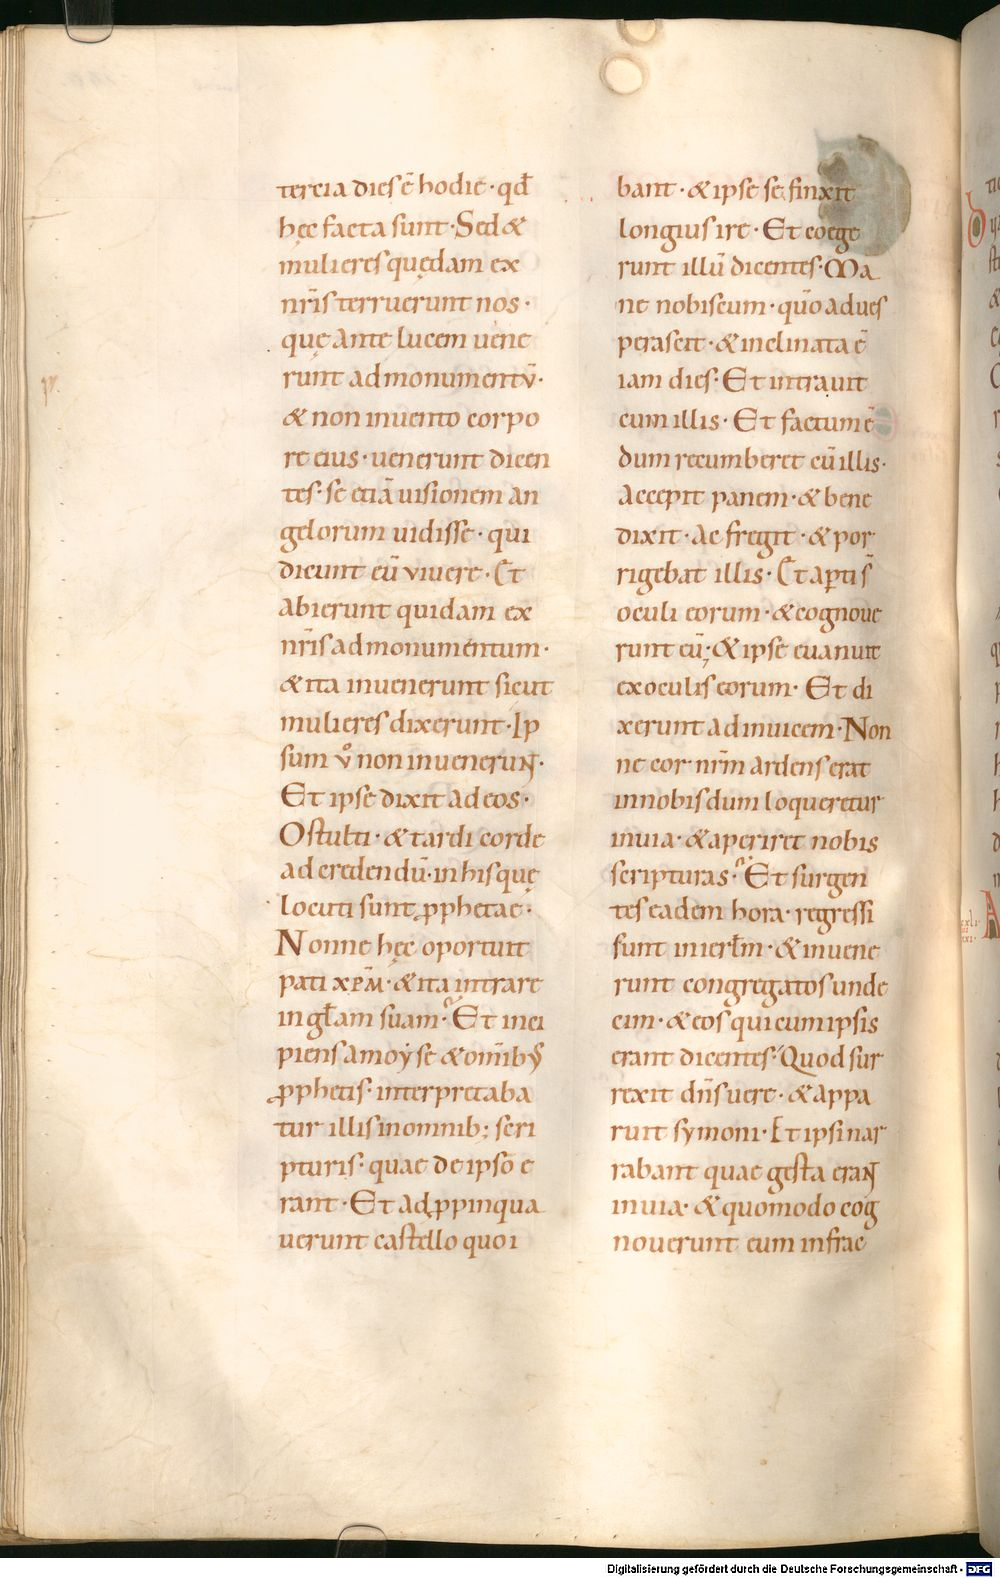 tercia dies ē hodie · qđ
hęc facta sunt · Sed &
mulieres quędam ex
nr̄is terruerunt nos ·
quę ante lucem uene
runt ad monumentū ·
& non inuento corpo
re eius · uenerunt dicen
tes · se etiā uisionem an
gelorum uidisse · qui
dicunt eū viuere · Et
abierunt quidam ex
nr̄is ad monumentum ·
& ita inuenerunt sicut
mulieres dixerunt · Ip
sum v̊ non inuenerunt ·
Et ipse dixit ad eos ·
O stulti · & tardi corde
ad credendū · in his quę
locuti sunt ꝓphetae ·
Nonne hęc oportuit
pati xp̄m · & ita intrare
in głam suam · Et inci
piens a moyse & om̄ibus
ꝓphetis · interpretaba
tur illis in omnib; scri
pturis · quae de ipso e
rant · Et adꝓpinqua
uerunt castello quo i
bant · & ipse se finxit
longius ire · Et coege
runt illū dicentes · Ma
ne nobiscum · quō aduęs
perascit · & inclinata ē
iam dies · Et intrauit
cum illis · Et factum ē
dum recumberet cū illis ·
accepit panem · & bene
dixit · ac fregit · & por
rigebat illis · Et aꝑti s̄
oculi eorum · & cognoue
runt eū · & ipse euanuit
ex oculis eorum · Et di
xerunt adinuicem · Non
ne cor nr̄m ardens erat
in nobis dum loqueretur
in uia · & aperiret nobis
scripturas · Et surgen
tes eadem hora · regressi
sunt in ierłm · & inuene
runt congregatos unde
cim · & eos qui cum ipsis
erant dicentes · Quod sur
rexit dn̄s uere · & appa
ruit symoni · Et ipsi nar
rabant quae gesta erant
in uia · & quomodo cog
nouerunt eum in frac
Digitalisierung gefördert durch die Deutsche Forschungsgemeinschaft - DFG